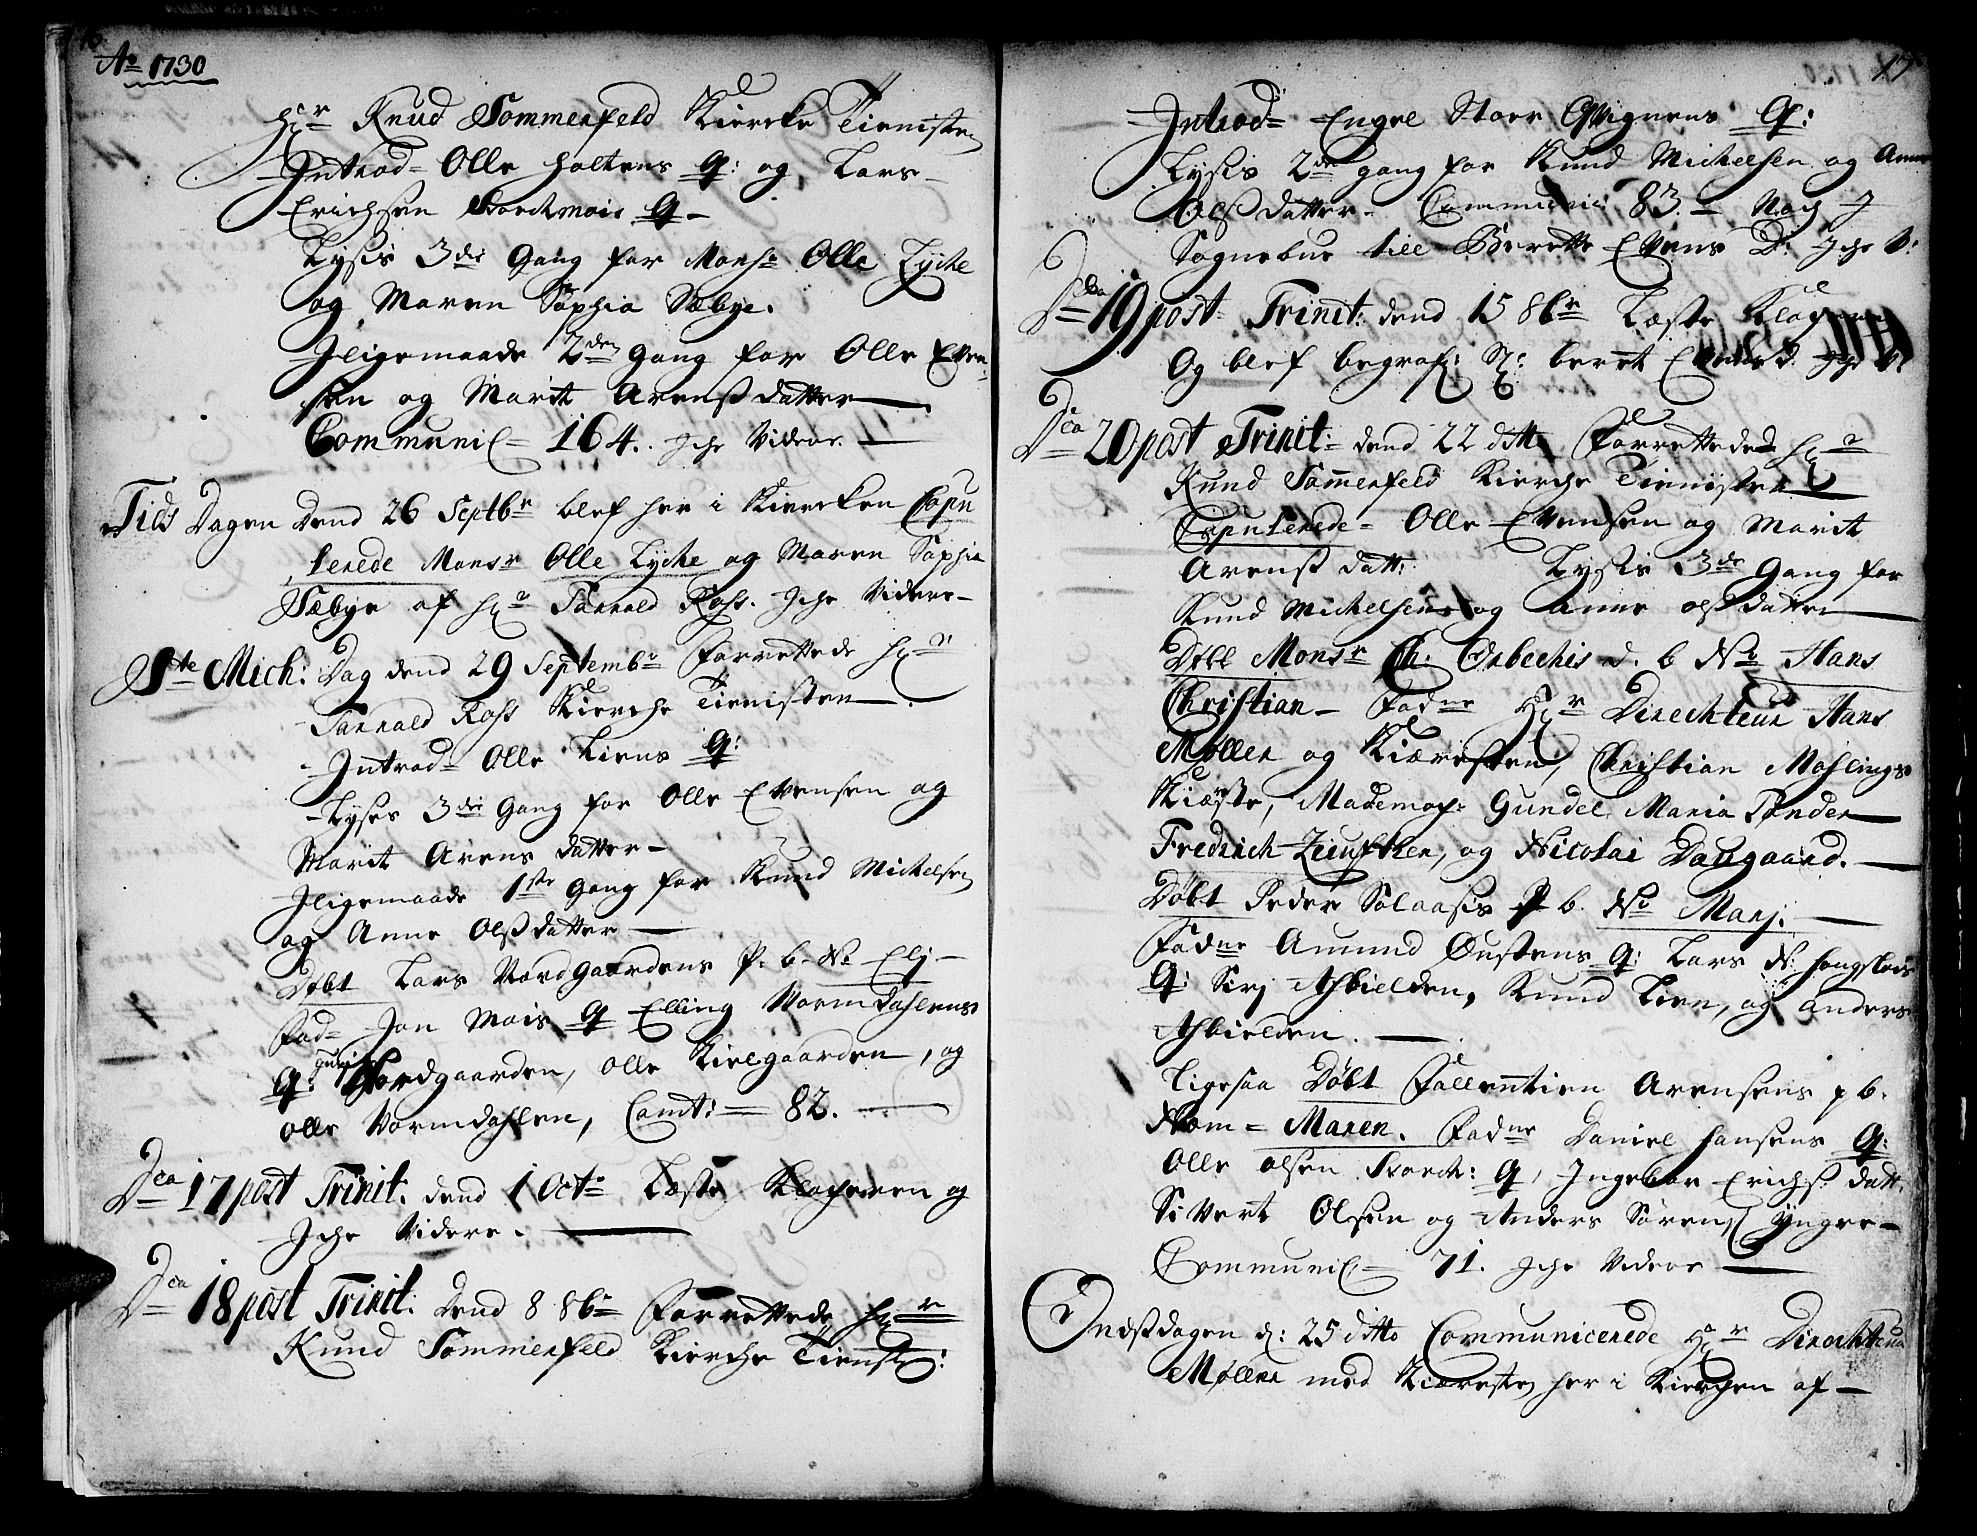 Ao 1730
Hr Knud Sommerfeld Kiercke Tienisten
Introd= Olle Holtens Q: og Lars
Erichsen Storchmois Q
Lysis 3die Gang for Monsr Olle Lyche
og Maren Sophia Sæbye.
Iligemaade 2den Gang for Olle Even-
sen og Marit Arensdatter
Communic= 164. Iche Videre.
Tisdagen dend 26 Septbr blef her i Kiercken Copu
lerede Monsr Olle Lyche og Maren Sophia
Sæbye af Hr Tarrald Rafs. Iche Videre
Ste Mich: Dag dend 29 Septembr Forrettede Hr
Tarrald Rafs Kierche Tienisten
Introd= Olle Liens Q:
Lyses 3die Gang for Olle Evensen og
Marit Arens datter
Iligemaade 1ste Gang for Knud Michelsen
og Anne Olsdatter
Døbt Lars Nordgaardens P. b. No Elj
Fad= Jon Mois Q Elling Vormdahlens
Q: Guri Nordgaarden, Olle Kielgaarden, og
Olle Vormdahlen, Comt: = 82.
Dca 17 post Trinit: dend 1 Octo Læste Klocheren og
Iche Videre.
Dca 18 post Trinit: Dend 8 8br Forrettede Hr
Knud Sommerfeld Kierche Tienst:
17
Introd= Engel Stoer Qvignens Q:
Lysis 2de gang for Knud Michelsen og Anne
Ols datter. Communic: 83. Nock I
Sognebud till Berette Evens D: Iche V:
Dca 19 post Trinit: dend 15 8br Læste Klocheren
Og blef begrafv: Sl: beret Evens d. Iche V:
Dca 20 post Trinit: dend 22 ditto Forrettede Hr
Knud Sommerfeld Kierche Tienisten
Copulerede Olle Evensen og Marit
Arens datt: Lysis 3de Gang for
Knud Michelsen og Anne olsdatter
Døbt Monsr Ch: Orbechis d. b No Hans
Christian Fadne Hr Directeur Hans
Møller og Kiæresten, Christian Moslings
Kiæste, Mademos: Gundel Maria Tønder
Fredrich Leuftker, og Nicolai Dausaard.
Døbt Peder Solaasis P b. No Marj.
Fadne Amund Øustens Q: Lars N: Hougsleds
Q: Sirj Asbielden, Knud Lien, og Anders
Asbielden.
Ligesaa Døbt Fallentien Arensens p b.
Nom= Maren. Fadne Daniel Hansens Q:
Olle olsen Storch: Q, Ingebor Erichs: datt.
Sivert Olsen og Anders Sørens Yngre
Communic= 71. Iche Videre
Onsdagen d: 25 ditto Communicerede Hr Directeur
Møller med Kiæresten her i Kierchen af